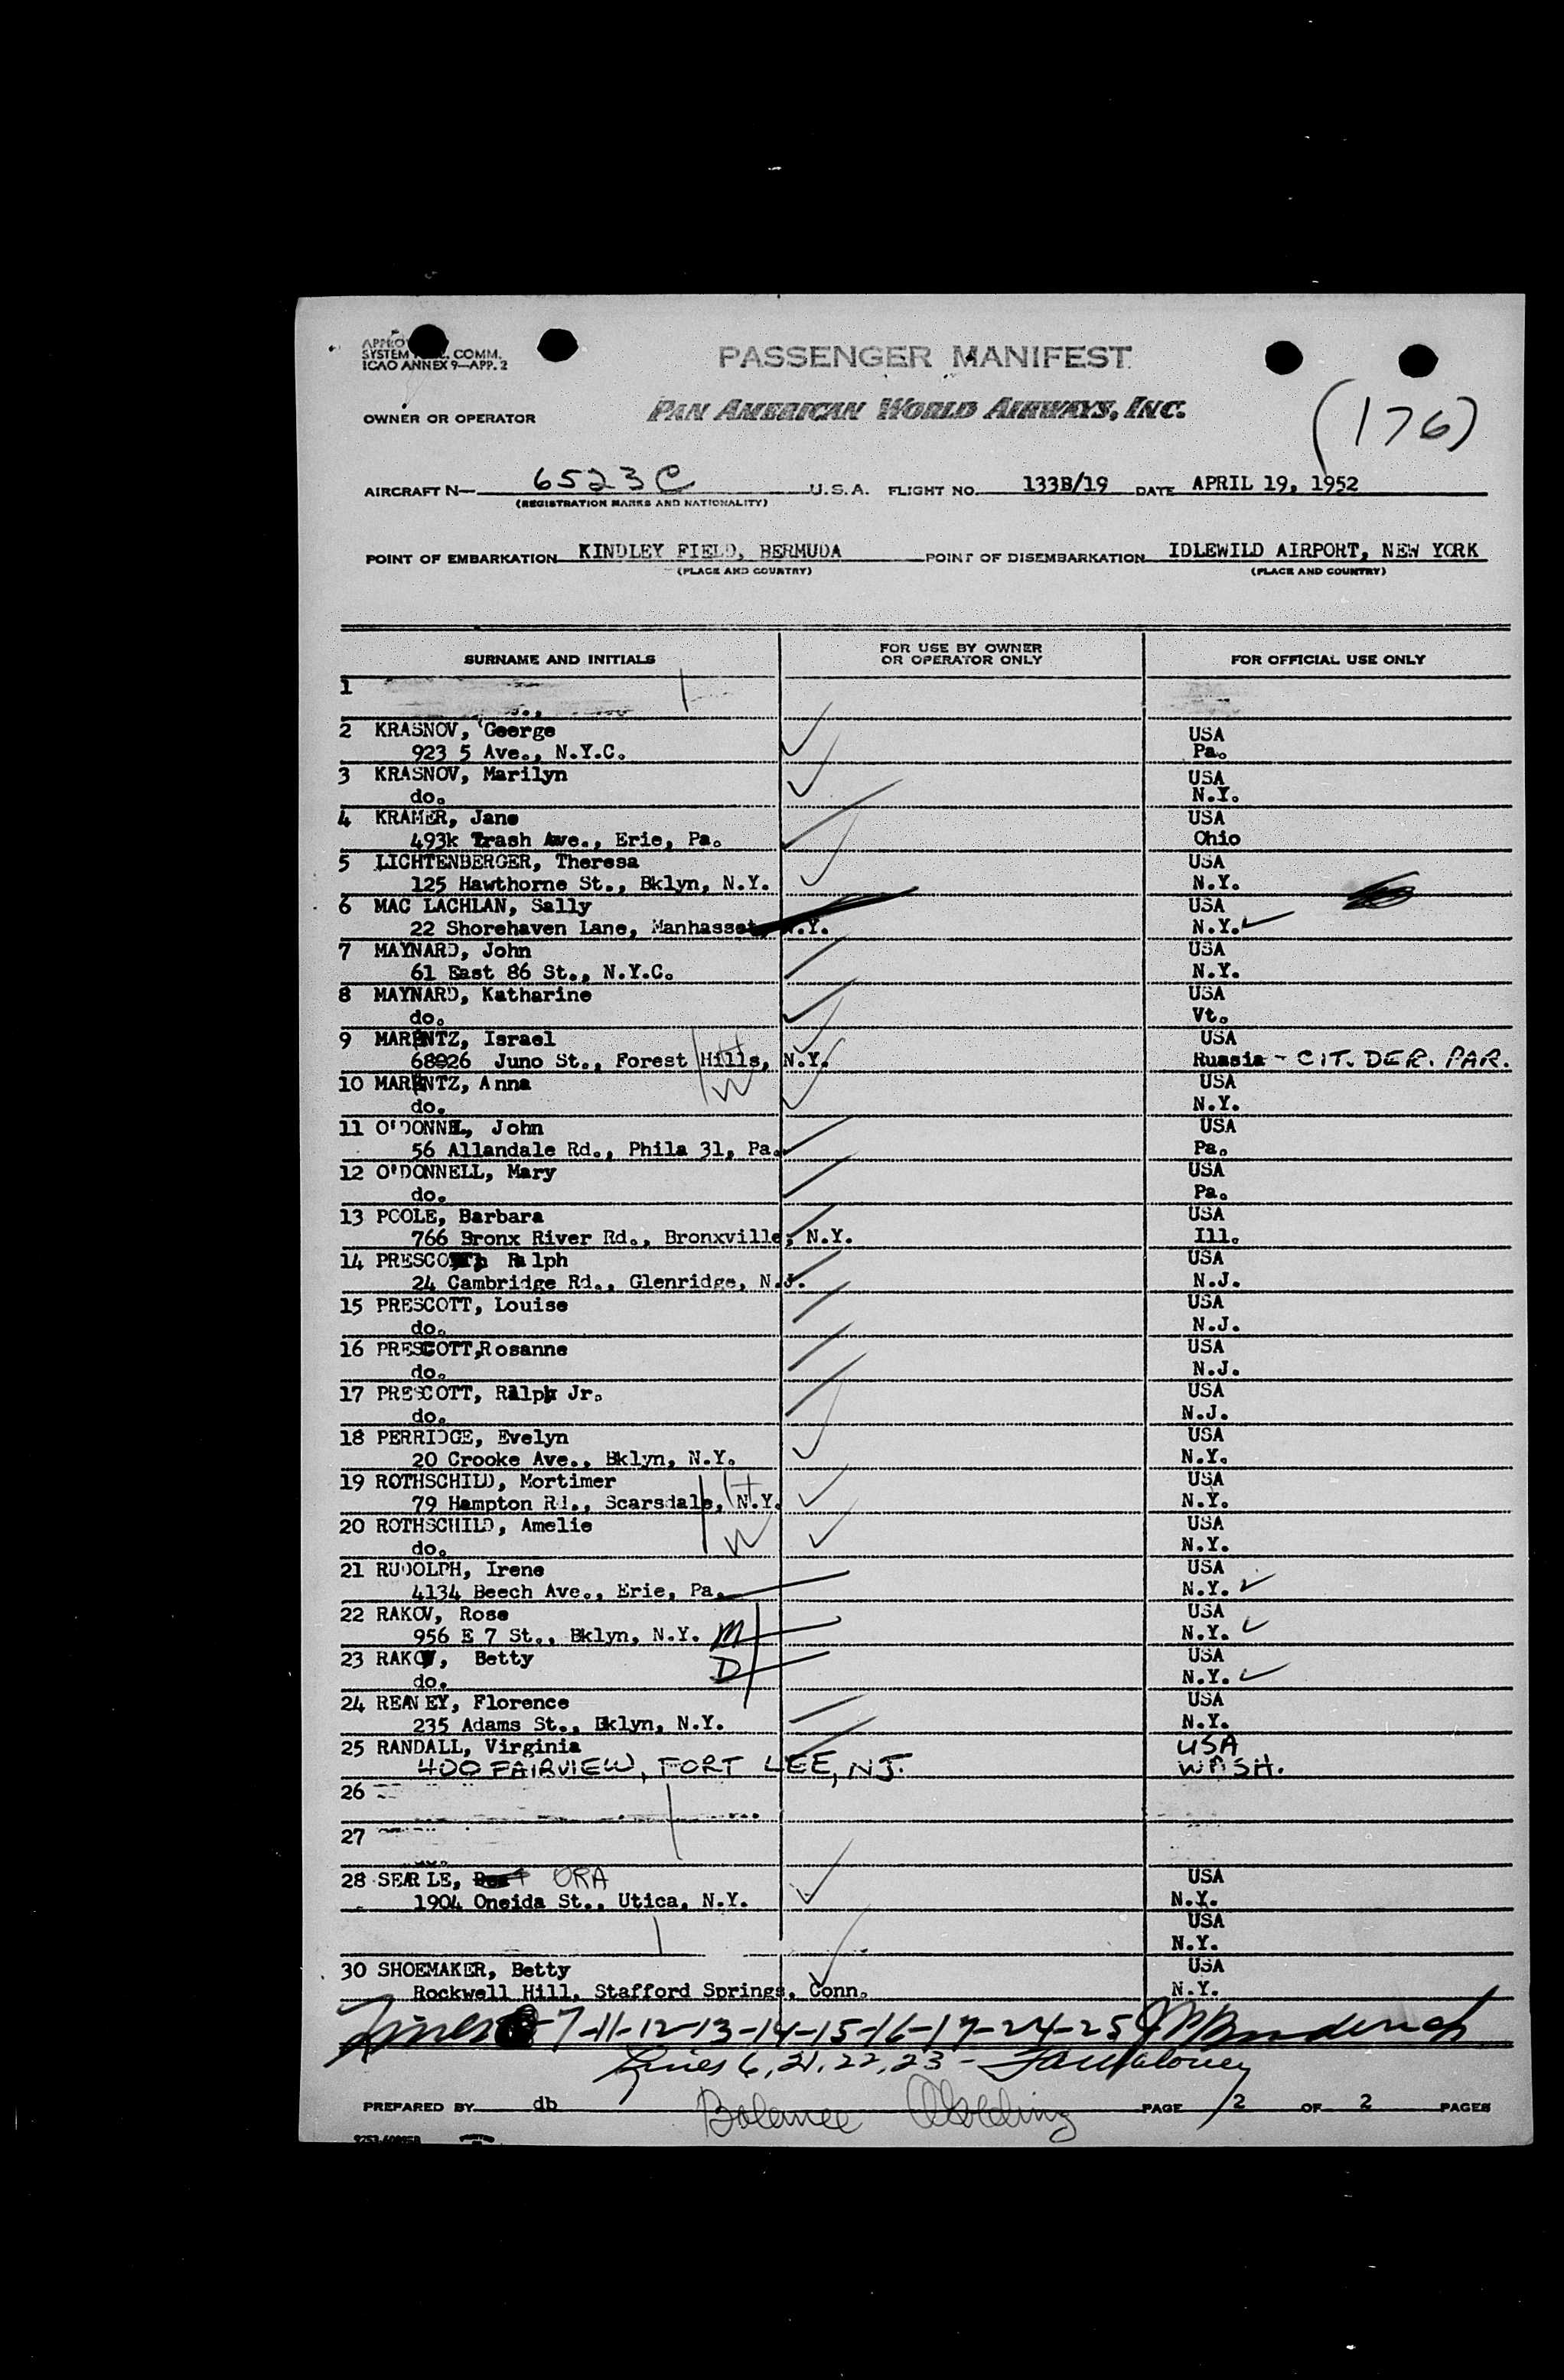 SYSTEM COMM.
ICAO ANNEX 9—APP. 2
PASSENGER MANIFEST
OWNER OR OPERATOR
PAN AMERICAN WORLD AIRWAYS, INC.
(176)
AIRCRAFT N— 6523C U.S.A. FLIGHT NO. 133B/19 DATE APRIL 19, 1952
(REGISTRATION MARKS AND NATIONALITY)
POINT OF EMBARKATION KINDLEY FIELD, BERMUDA POINT OF DISEMBARKATION IDLEWILD AIRPORT, NEW YORK
(PLACE AND COUNTRY) (PLACE AND COUNTRY)
SURNAME AND INITIALS FOR USE BY OWNER OR OPERATOR ONLY FOR OFFICIAL USE ONLY
1
2 KRASNOV, George USA
923 5 Ave., N.Y.C. Pa.
3 KRASNOV, Marilyn USA
do. N.Y.
4 KRAMER, Jane USA
493k Trash Ave., Erie, Pa. Ohio
5 LICHTENBERGER, Theresa USA
125 Hawthorne St., Bklyn, N.Y. N.Y.
6 MAC LACHLAN, Sally USA
22 Shorehaven Lane, Manhasset, N.Y. N.Y.
7 MAYNARD, John USA
61 East 86 St., N.Y.C. N.Y.
8 MAYNARD, Katharine USA
do. Vt.
9 MARANTZ, Israel USA
68026 Juno St., Forest Hills, N.Y. H Russia - CIT. DER. PAR.
10 MARANTZ, Anna W USA
do. N.Y.
11 O'DONNEL, John USA
56 Allandale Rd., Phila 31, Pa. Pa.
12 O'DONNELL, Mary USA
do. Pa.
13 POOLE, Barbara USA
766 Bronx River Rd., Bronxville, N.Y. Ill.
14 PRESCOTT, Ralph USA
24 Cambridge Rd., Glenridge, N.J. N.J.
15 PRESCOTT, Louise USA
do. N.J.
16 PRESCOTT, Rosanne USA
do. N.J.
17 PRESCOTT, Ralph Jr. USA
do. N.J.
18 PERRIDGE, Evelyn USA
20 Crooke Ave., Bklyn, N.Y. N.Y.
19 ROTHSCHILD, Mortimer H USA
79 Hampton Rd., Scarsdale, N.Y. N.Y.
20 ROTHSCHILD, Amelie W USA
do. N.Y.
21 RUDOLPH, Irene USA
4134 Beech Ave., Erie, Pa. N.Y.
22 RAKOV, Rose USA
956 E 7 St., Bklyn, N.Y. M N.Y.
23 RAKOV, Betty D USA
do. N.Y.
24 REANEY, Florence USA
235 Adams St., Bklyn, N.Y. N.Y.
25 RANDALL, Virginia USA
400 FAIRVIEW, FORT LEE, NJ. WASH.
26
27
28 SEARLE, ORA USA
1904 Oneida St., Utica, N.Y. N.Y.
USA
N.Y.
30 SHOEMAKER, Betty USA
Rockwell Hill, Stafford Springs, Conn. N.Y.
Lines 7-11-12-13-14-15-16-17-24-25
Lines 6, 21, 22, 23 -
Balance
PREPARED BY db PAGE 2 OF 2 PAGES